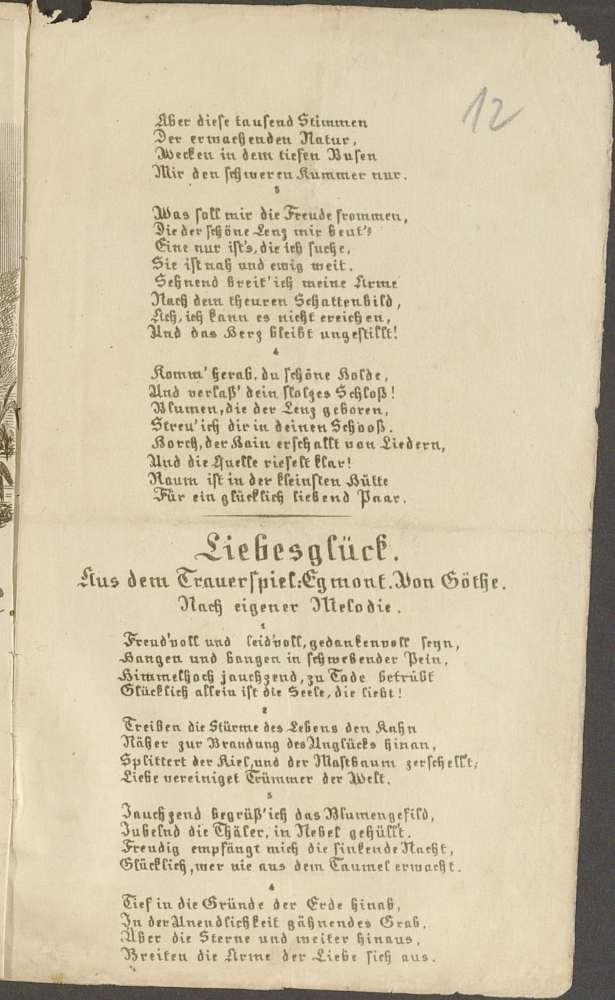 12
Aber diese tausend Stimmen
Der erwachenden Natur,
Wecken in dem tiefen Busen
Mir den schweren Kummer nur.
3
Was soll mir die Freude frommen,
Die der schöne Lenz mir beut'?
Eine nur ist's, die ich suche,
Sie ist nah und ewig weit.
Sehnend breit' ich meine Arme
Nach dem theuren Schattenbild,
Ach, ich kann es nicht ereichen,
Und das Herz bleibt ungestillt!
4
Komm' herab, du schöne Holde,
Und verlaß' dein stolzes Schloß!
Blumen, die der Lenz geboren,
Streu' ich dir in deinen Schooß.
Horch, der Hain erschallt von Liedern,
Und die Quelle rieselt klar!
Raum ist in der kleinsten Hütte
Für ein glücklich liebend Paar.
Liebesglück.
Aus dem Trauerspiel: Egmont. Von Göthe.
Nach eigener Melodie.
1
Freud'voll und leid'voll, gedankenvoll seyn,
Hangen und bangen in schwebender Pein,
Himmelhoch jauchzend, zu Tode betrübt
Glücklich allein ist die Seele, die liebt!
2
Treiben die Stürme des Lebens den Kahn
Näher zur Brandung des Unglücks hinan,
Splittert der Kiel, und der Mastbaum zerschellt;
Liebe vereiniget Trümmer der Welt.
3
Jauchzend begrüß' ich das Blumengefild,
Jubelnd die Thäler, in Nebel gehüllt.
Freudig empfängt mich die sinkende Nacht,
Glücklich, wer nie aus dem Taumel erwacht.
4
Tief in die Gründe der Erde hinab,
In der Unendlichkeit gähnendes Grab,
Über die Sterne und weiter hinaus,
Breiten die Arme der Liebe sich aus.